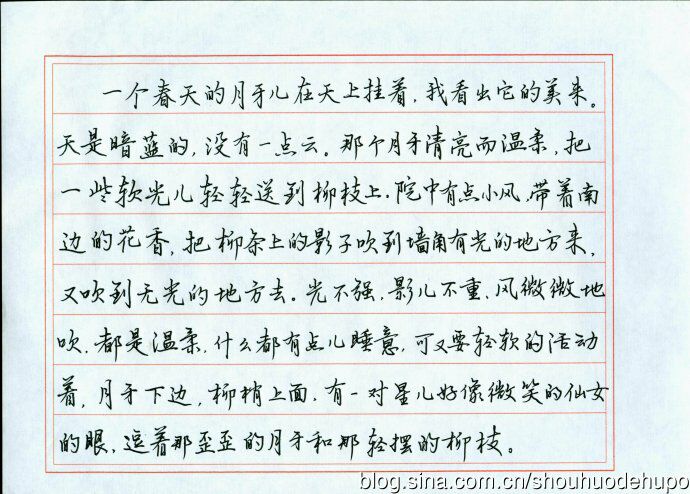 一个春天的月牙儿在天上挂着，我看出它的美来。
天是暗蓝的，没有一点云。那个月牙清亮而温柔，把
一些软光儿轻轻送到柳枝上。院中有点小风，带着南
边的花香，把柳条上的影子吹到墙角有光的地方来，
又吹到无光的地方去。光不强，影儿不重，风微微地
吹，都是温柔，什么都有点儿睡意，可又要轻软的活动
着，月牙下边，柳梢上面，有一对星儿好像微笑的仙女
的眼，逗着那歪歪的月牙和那轻摆的柳枝。
blog.sina.com.cn/shouhuodehupo